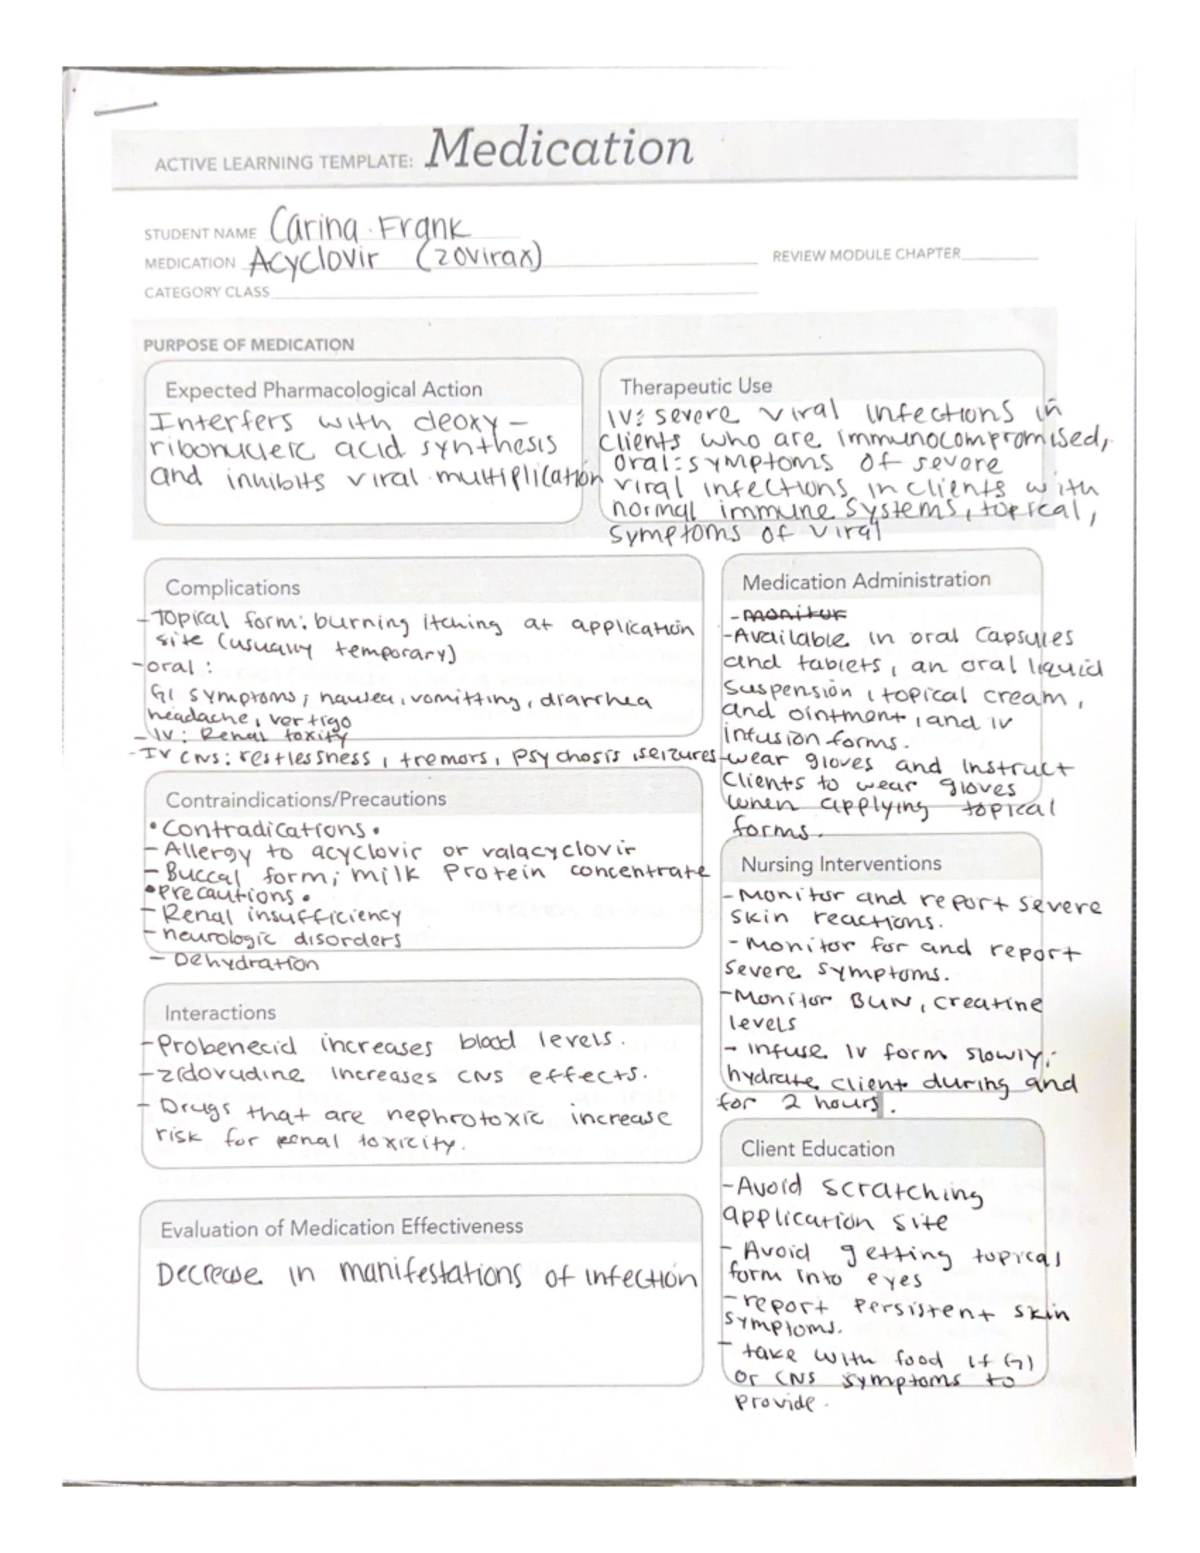 ACTIVE LEARNING TEMPLATE: Medication
STUDENT NAME Carina Frank
MEDICATION Acyclovir (Zovirax)
REVIEW MODULE CHAPTER
CATEGORY CLASS
PURPOSE OF MEDICATION
Expected Pharmacological Action
Interfers with deoxy-
ribonucleic acid synthesis
and inhibits viral multiplication
Therapeutic Use
IV: severe viral infections in
clients who are immunocompromised,
oral: symptoms of severe
viral infections in clients with
normal immune systems, topical,
symptoms of viral
Complications
- Topical form: burning itching at application
site (usually temporary)
- oral:
GI symptoms; nausea, vomitting, diarrhea
headache, vertigo
- IV: Renal toxity
- IV CNS: restlessness, tremors, psychosis, seizures
Medication Administration
- monitor
- Available in oral capsules
and tablets, an oral liquid
suspension, topical cream,
and ointment, and IV
infusion forms.
- wear gloves and instruct
clients to wear gloves
when applying topical
forms.
Contraindications/Precautions
• Contradications •
- Allergy to acyclovir or valacyclovir
- Buccal form; milk protein concentrate
• Precautions •
- Renal insufficiency
- neurologic disorders
- Dehydration
Nursing Interventions
- Monitor and report severe
skin reactions.
- Monitor for and report
severe symptoms.
- Monitor BUN, creatine
levels
- infuse IV form slowly;
hydrate client during and
for 2 hours.
Interactions
- Probenecid increases blood levels.
- zidovudine increases CNS effects.
- Drugs that are nephrotoxic increase
risk for renal toxicity.
Client Education
- Avoid scratching
application site
- Avoid getting topical
form into eyes
- report persistent skin
symptoms.
- take with food if GI
or CNS symptoms to
provide.
Evaluation of Medication Effectiveness
Decrease in manifestations of infection